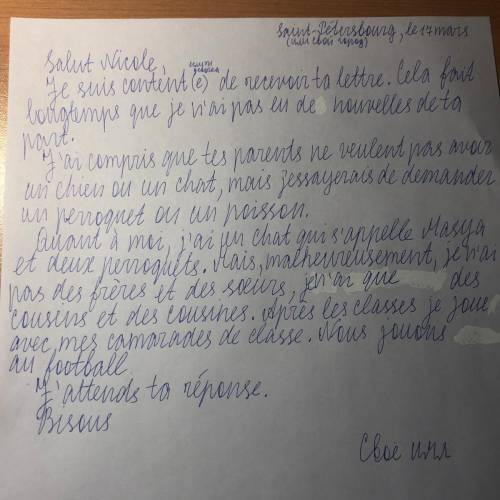 Saint-Pétersbourg, le 17 mars
(или свой город)
Salut Nicole,
Je suis content(e) de recevoir ta lettre. Cela fait
longtemps que je n'ai pas eu de nouvelles de ta
part.
J'ai compris que tes parents ne veulent pas avoir
un chien ou un chat, mais j'essayerais de demander
un perroquet ou un poisson.
Quant à moi, j'ai un chat qui s'appelle Masya
et deux perroquets. Mais, malheureusement, je n'ai
pas des frères et des sœurs, je n'ai que des
cousins et des cousines. Après les classes je joue
avec mes camarades de classe. Nous jouons
au football.
J'attends ta réponse.
Bisous
Своё имя